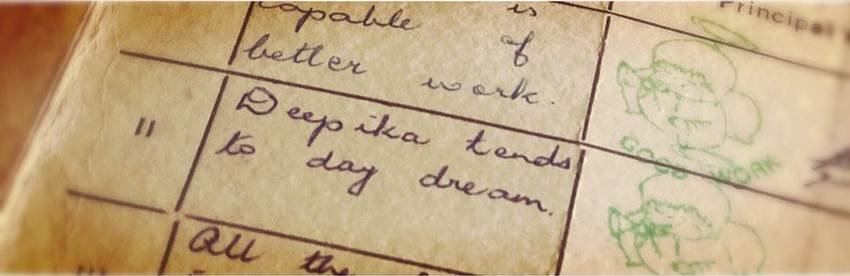 capable is
of
better work.
Principal
II
Deepika tends
to day dream.
GOOD WORK
All the